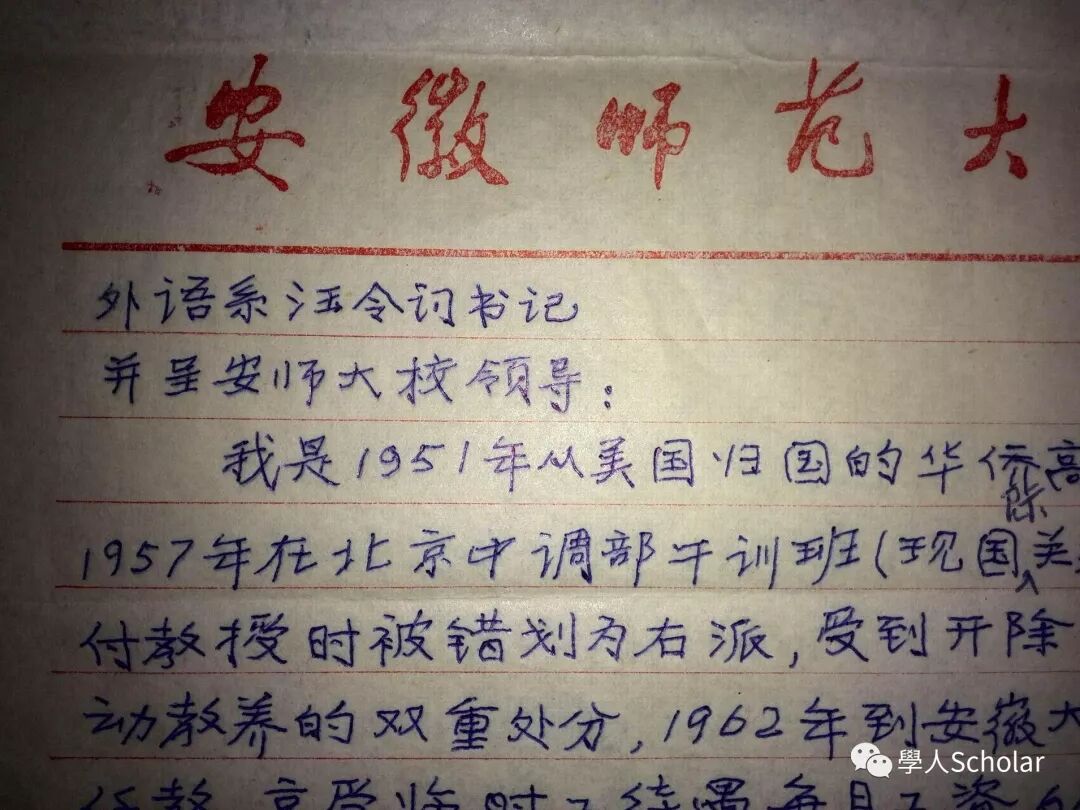 安徽师范大
外语系汪令词书记
并呈安师大校领导：
我是1951年从美国归国的华侨高
1957年在北京中调部干训班(现国际关
付教授时被错划为右派，受到开除
动教养的双重处分，1962年到安徽大
任教，享受临时工待遇每月工资
學人Scholar